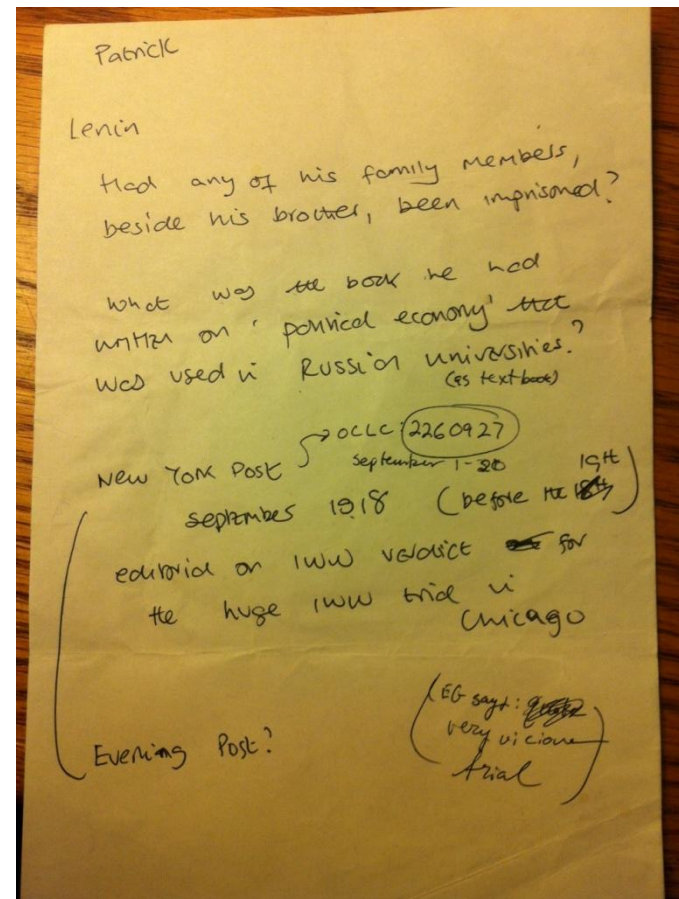 Patrick
Lenin
Had any of his family members,
beside his brother, been imprisoned?
What was the book he had
written on 'political economy' that
was used in Russian universities?
(as textbook)
OCLC: 2260927
New York Post September 1-20
September 1918 (before the 19th)
editorial on IWW verdict for
the huge IWW trial in
Chicago
Evening Post?
(EG says:
very vicious
trial)